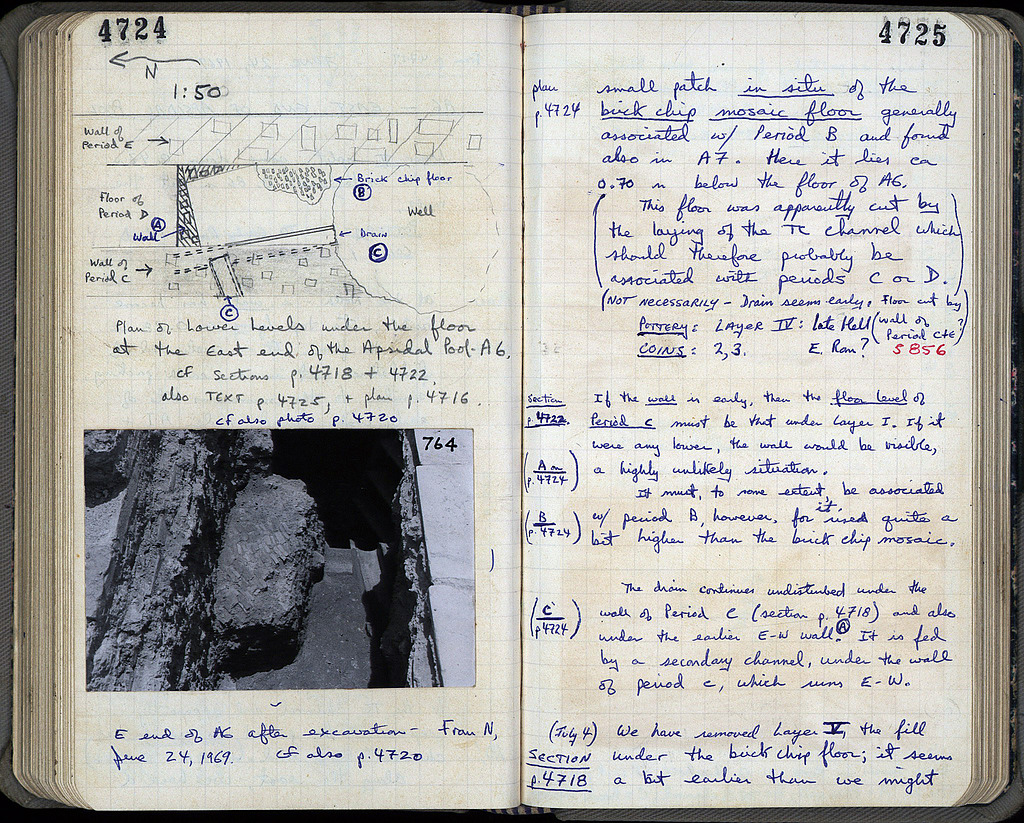 4724
N
1:50
Wall of
Period E
Brick chip floor
B
Floor of
Period D
A
Wall
Well
Drain
C
Wall of
Period C
C
Plan of Lower Levels under the floor
at the East end of the Apsidal Pool-A6.
cf sections p.4718 + 4722,
also TEXT p 4725, + plan p.4716.
cf also photo p. 4720
764
E end of A6 after excavation - From N,
June 24, 1969. cf also p.4720
4725
plan
p.4724
small patch in situ of the
brick chip mosaic floor generally
associated w/ Period B and found
also in A7. Here it lies ca
0.70 m below the floor of A6.
(This floor was apparently cut by
the laying of the TC channel which
should therefore probably be
associated with periods C or D.)
(NOT NECESSARILY - Drain seems early. Floor cut by
wall of
Period C+E?)
POTTERY: LAYER IV: late Hell
COINS: 2,3. E. Rom? S 856
Section
p.4722.
If the wall is early, then the floor level of
Period C must be that under Layer I. If it
were any lower, the wall would be visible,
(A on
p.4724)
a highly unlikely situation.
It must, to some extent, be associated
(B
p.4724)
w/ period B, however, for it used quite a
bit higher than the brick chip mosaic.
The drain continues undisturbed under the
(C
p4724)
wall of Period C (section p. 4718) and also
under the earlier E-W wall A. It is fed
by a secondary channel, under the wall
of period C, which runs E-W.
(July 4) We have removed Layer V, the fill
SECTION
p.4718
under the brick chip floor; it seems
a bit earlier than we might